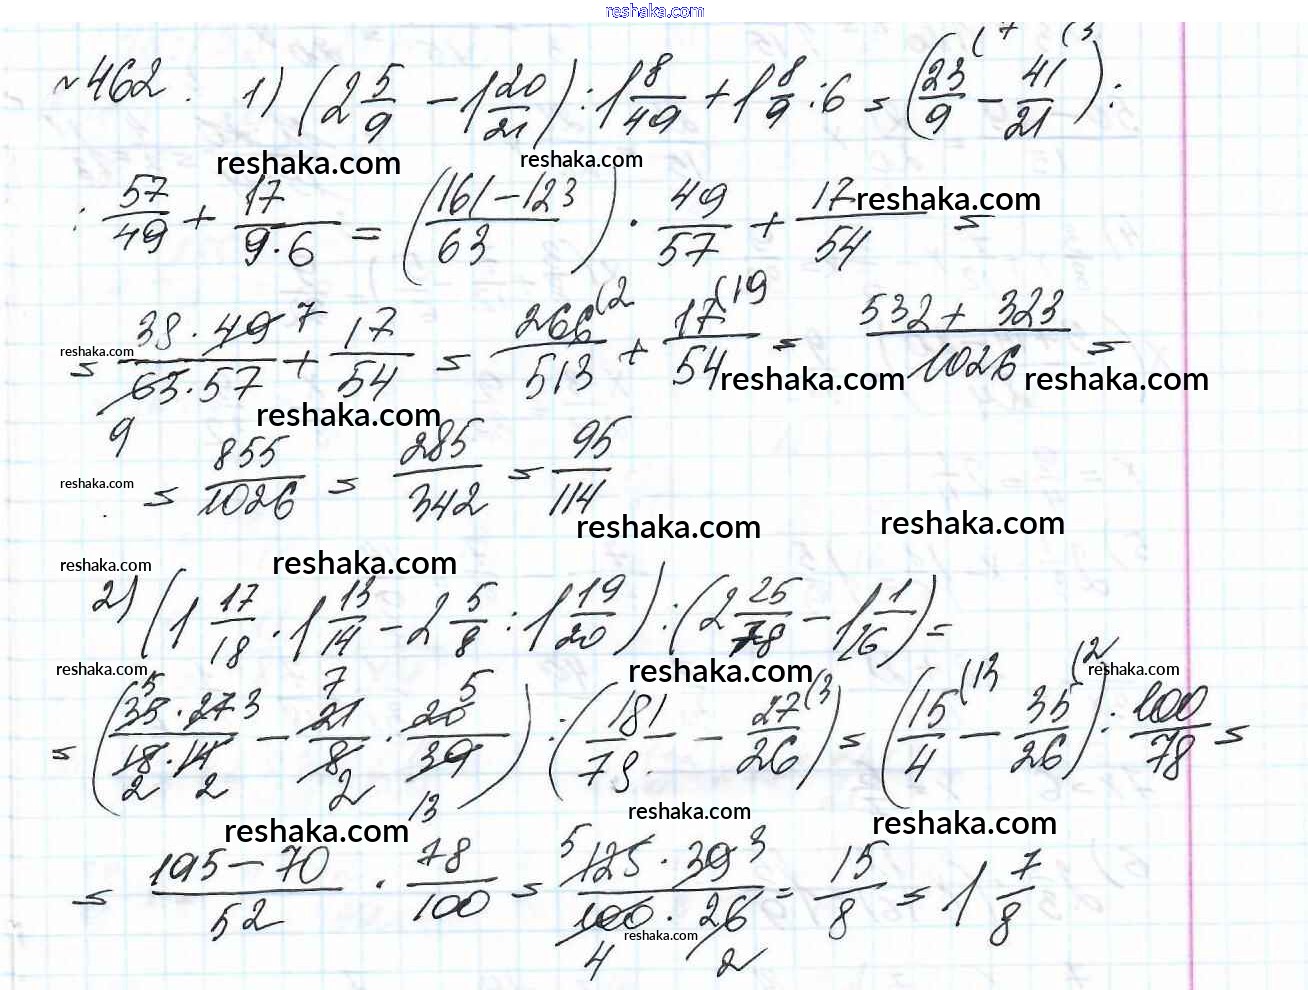 reshaka.com
№462. 1) (2 5/9 - 1 20/21) : 1 8/49 + 1 8/9 : 6 = (23/9 (7 - 41/21 (3) :
reshaka.com reshaka.com
: 57/49 + 17/(9·6) = ((161-123)/63) · 49/57 + 17/54 = reshaka.com
reshaka.com = (38·49 7)/(63·57 9) + 17/54 = 266/513 (2 + 17/54 (19 = (532+323)/1026 =
reshaka.com reshaka.com reshaka.com
reshaka.com = 855/1026 = 285/342 = 95/114
reshaka.com reshaka.com
reshaka.com reshaka.com
2) (1 17/18 · 1 13/14 - 2 5/8 : 1 19/20) : (2 25/78 - 1 1/26) =
reshaka.com reshaka.com reshaka.com
= ((35 5 · 27 3)/(18 2 · 14 2) - 21 7/8 2 · 20 5/39 13) : (181/78 - 27/26 (3) = (15/4 (13 - 35/26 (2) : 100/78 =
reshaka.com reshaka.com reshaka.com
= (195-70)/52 · 78/100 = (5 125 · 39 3)/(100 4 · 26 2) = 15/8 = 1 7/8
reshaka.com